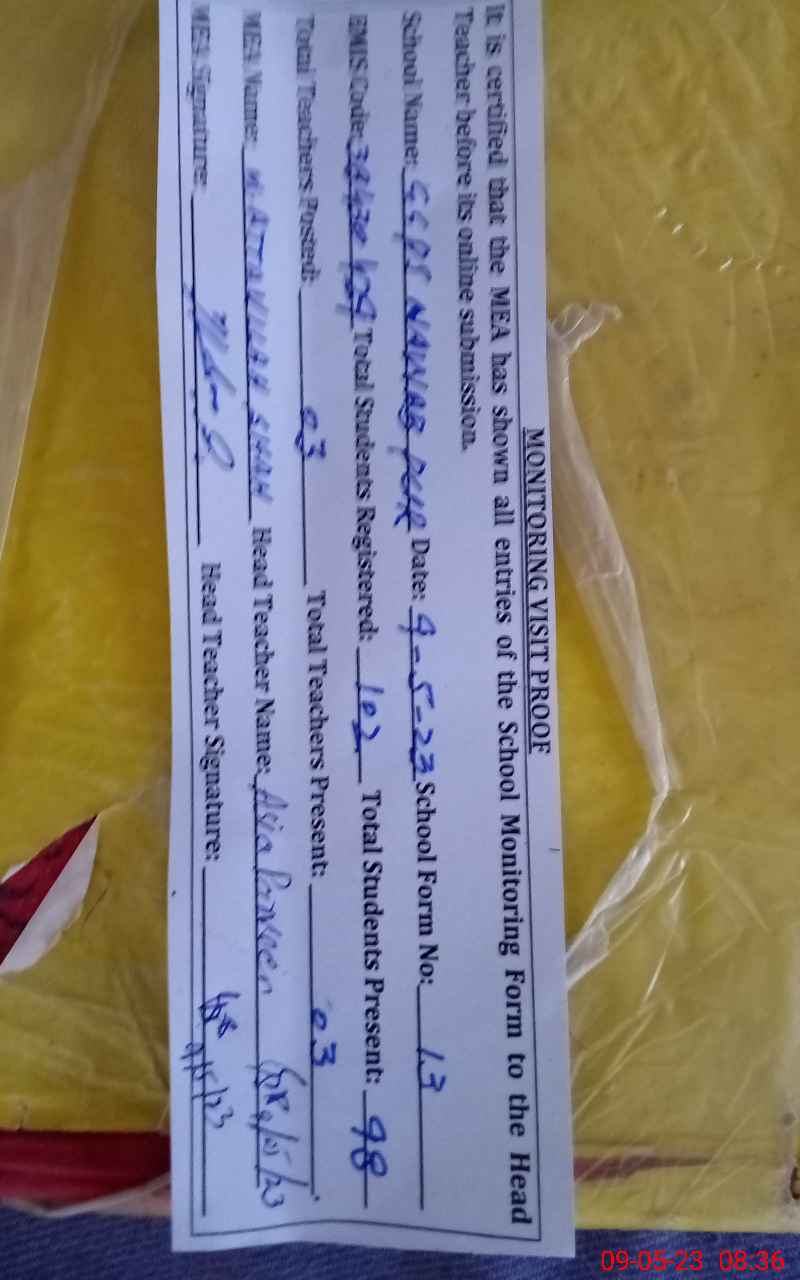 MONITORING VISIT PROOF
It is certified that the MEA has shown all entries of the School Monitoring Form to the Head
Teacher before its online submission.
School Name: GGPS NAWAB PUR Date: 9-5-23 School Form No: 13
EMIS Code: Total Students Registered: 102 Total Students Present: 98
Total Teachers Posted: 03 Total Teachers Present: 03
MEA Name: M. ATTA ULLAH SHAH Head Teacher Name: Asia Parveen
MEA Signature: Head Teacher Signature: 9/5/23
09-05-23 08:36